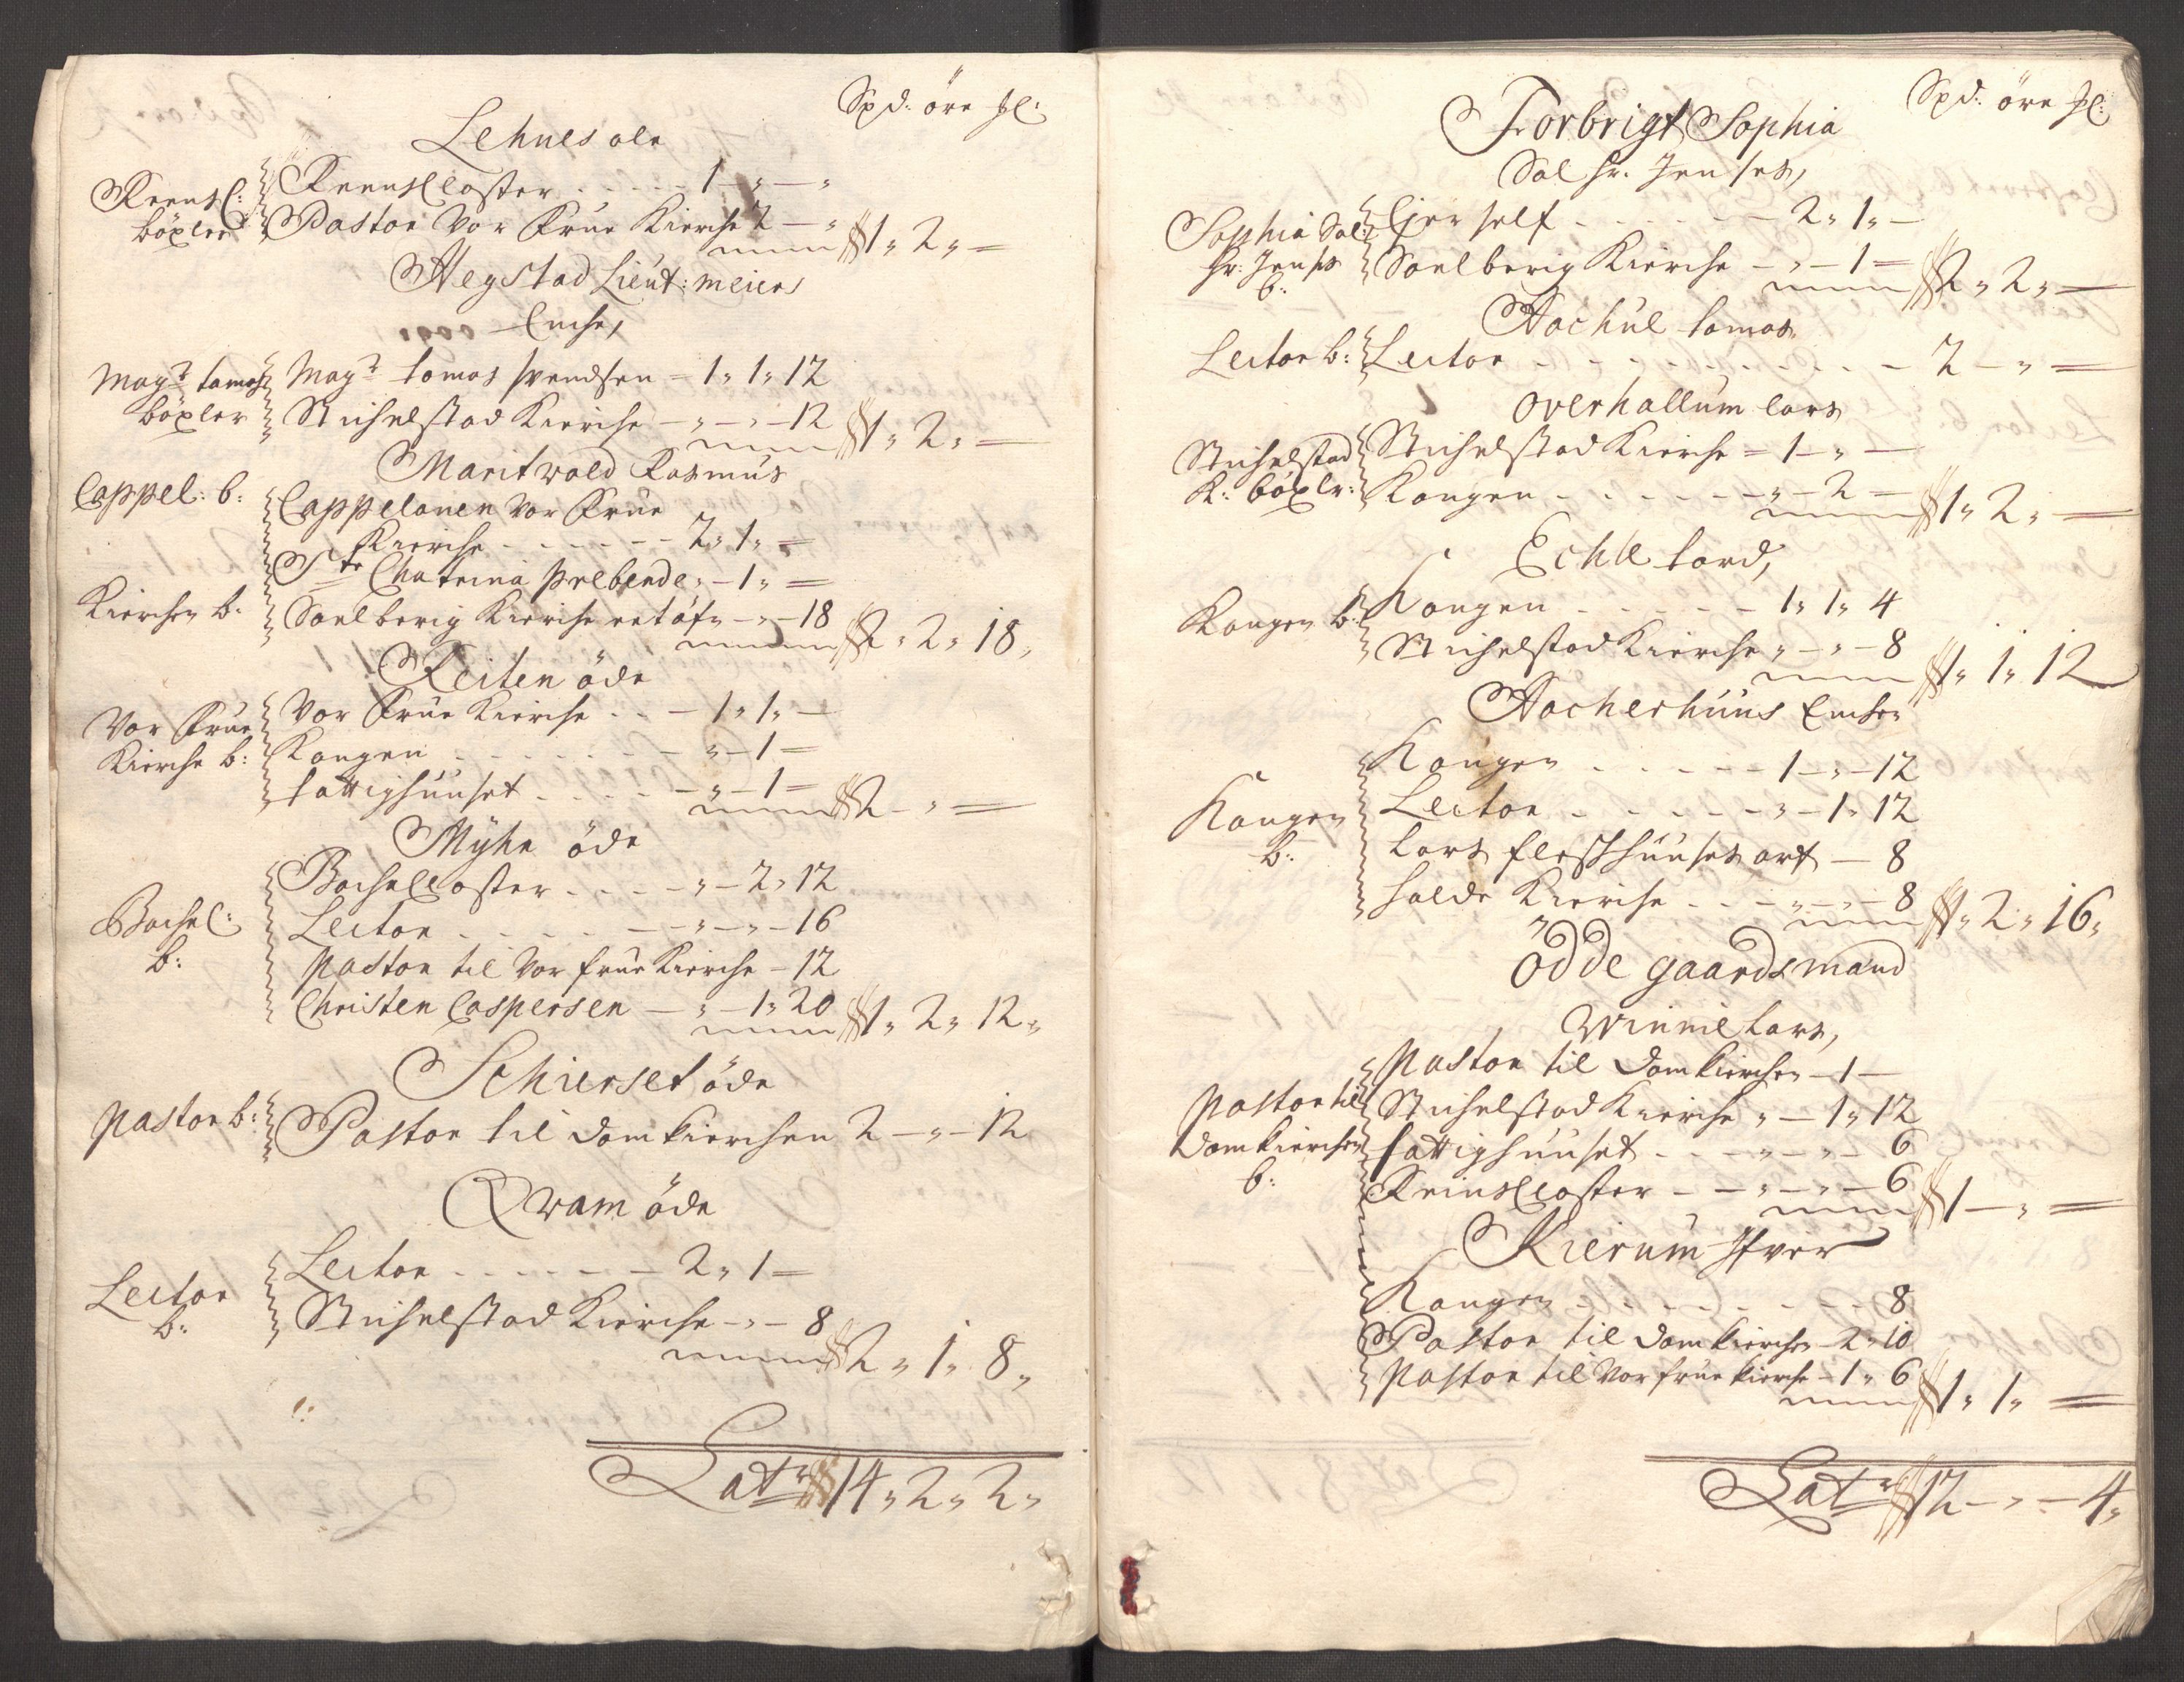 Spd: öre Ml:
Lehnes ole
Reens C:
böxler
ReensCloster - - - - 1 - " - "
Pastor Vor Frue Kierche 2 - "
1 " 2 " =
Hegstad Lieut: meiers
Enche,
Magr tomas
böxler
Magr tomas svendsen - 1 " 1 " 12
Stichelstad Kierche - " - " - 12
1 " 2 " =
Maritwold Rasmus
Cappel: b:
Cappelanen Vor Frue
Kierche - - - - - 2 " 1 " =
Ste Chatrina Prebende " - 1 " =
Kierchen b:
Saelberig Kierche - " - 18
2 " 2 " 18 "
Reiten öde
Vor Frue
Kierche b:
Vor Frue Kierche - - - 1 " 1 " -
Kongen - - - - - " - 1 =
fattighuuset - - - - " - 1 =
2 - " =
Myhr öde
Bachel:
b:
BachelCloster - - - - " - 2 " 12
Lector - - - - - " - " - 16
Pastor til Vor frue Kierche - 12
Christen Caspersen - " - 1 " 20
1 " 2 " 12 "
Schierset öde
Pastor b:
Pastor til Domkierchen 2 - " - 12
Qvam öde
Lector
b:
Lector - - - - - 2 " 1 =
Stichelstad Kierche - " - 8
2 " 1 " 8 "
Latr 14 " 2 " 2 "
Spd: öre Ml:
Torbrigt Sophia
Sal hr. Jenses,
Sophia Sal:
hr: Jenses
b:
Ejer self - - - - - 2 " 1 " -
Saelberig Kierche - " - 1 =
2 " 2 " =
Aachul tomas
Lector b:
Lector - - - - - - - - 2 - " =
Overhallum lars
Stichelstad
K: böxlr:
Stichelstad Kierche = 1 - " -
Kongen - - - - - " - 2 =
1 " 2 " =
Echle tord,
Kongen b:
Kongen - - - - - 1 " 1 " 4
Stichelstad Kierche " - " - 8
1 " 1 " 12
Aacherhuus Enchen
Kongen
b:
Kongen - - - - - 1 - " - 12
Lector - - - - - " - 1 " 12
Lars fleschhuuses arf - 8
Halde Kierche - - - " - " - 8
1 " 2 " 16 "
Ödde gaardsmand
Winnie Lars,
Pastor til
Domkierchen
b:
Pastor til Domkierchen - 1 -
Stichelstad Kierche " - 1 " 12
fattighuuset - - - " - " - 6
ReinsCloster - - " - " - 6
1 - " =
Kierum Ifver
Kongen - - - - - - - 8
Pastor til Domkierchen - 2 " 10
Pastor til Vor frue kierche - 1 " 6
1 " 1 " =
Latr 12 - " - 4 "